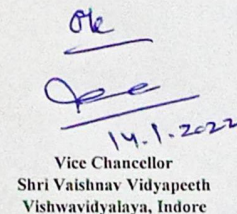 Ok
14.1.2022
Vice Chancellor
Shri Vaishnav Vidyapeeth
Vishwavidyalaya, Indore